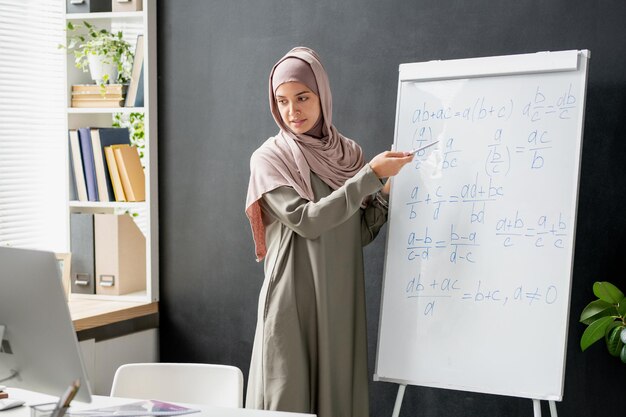 ab+ac=a(b+c) a b/c = ab/c
(a/b)/c = a/bc a/(b/c) = ac/b
a/b + c/d = ad+b/bd
a-b/c-d = b-a/d-c a+b/c = a/c + b/c
ab+ac/a = b+c, a≠0